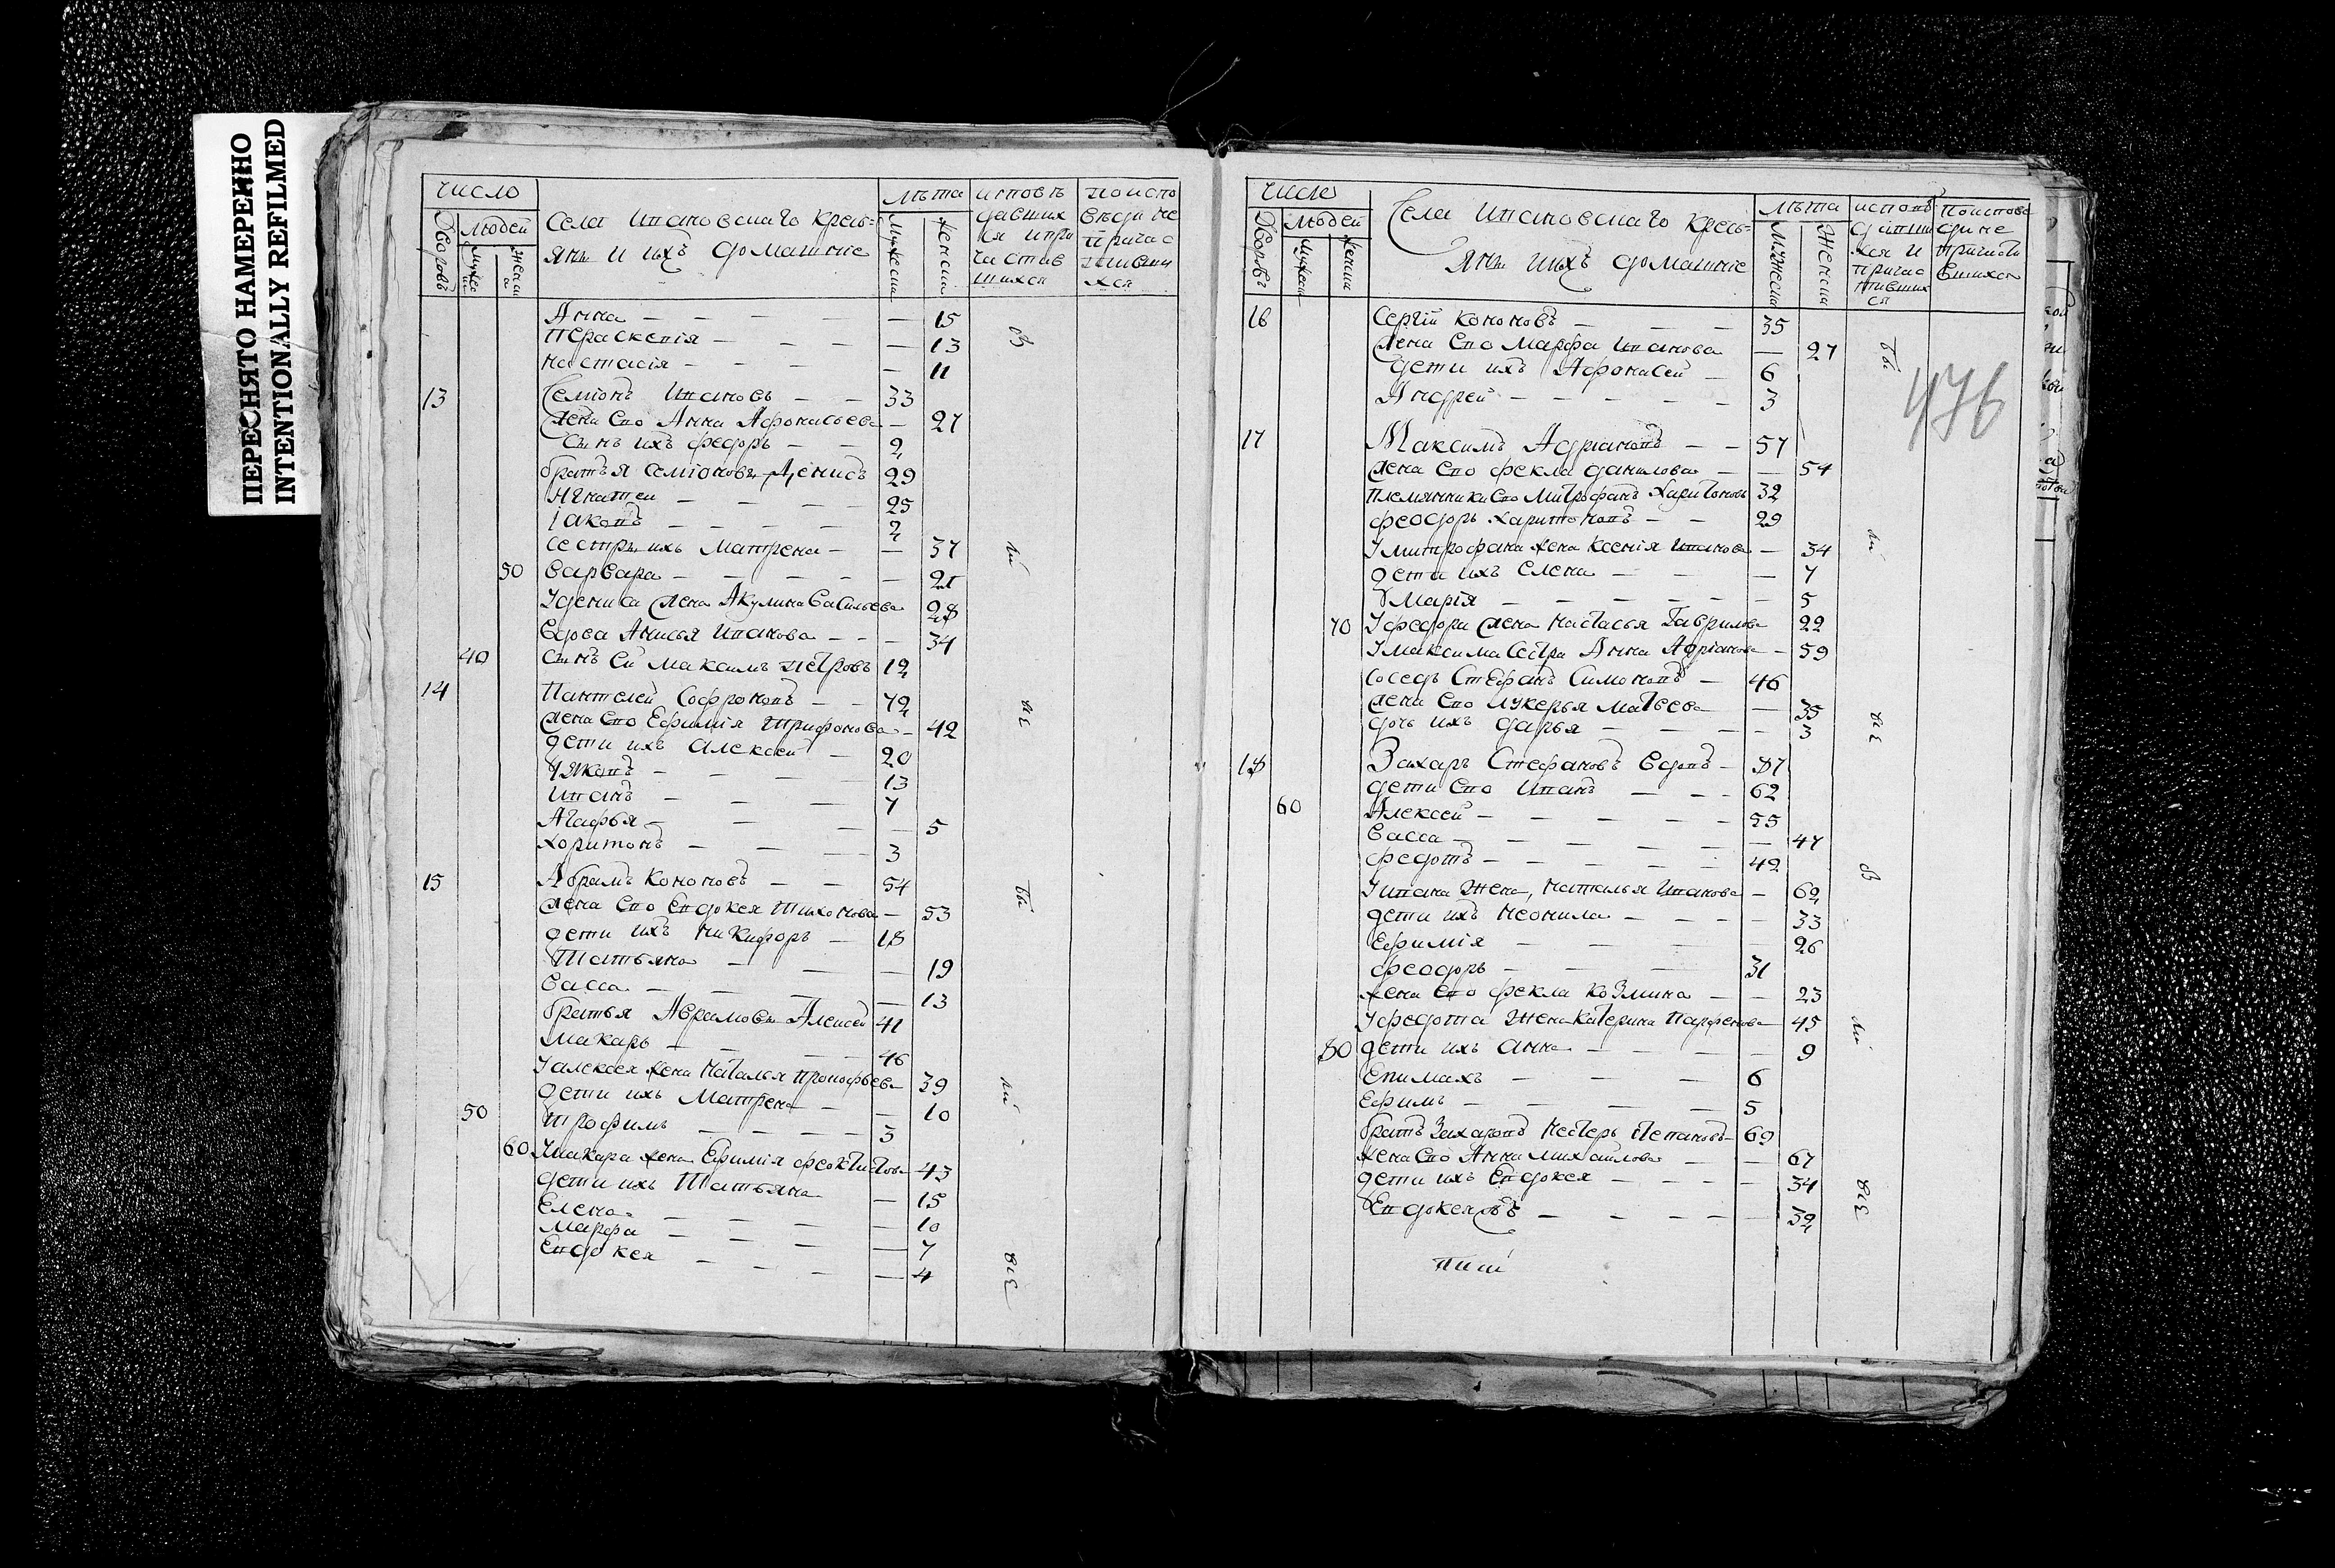 ПЕРЕСНЯТО НАМЕРЕННО
INTENTIONALLY REFILMED
число
Дворовъ
людей
мужес
женска
Села Ивановскаго кресь=
янъ и ихъ домашніе
лѣта
мужеска
женска
исповѣ
давших
ся и при
частив
шихся
по испо
вѣди не
причас
тивши
хся
Анна — 15
Пераскевія — 13
Настасія — 11
13 Семіонъ Ивановъ 33
жена его Анна Афонасьева — 27
сынъ ихъ федоръ 2
братья Семіоновы Денисъ 29
Игнатеи 25
Іаковъ 2
сестры ихъ Матрена — 37
50 Варвара — 21
У дениса жена Акулина Васильева 28
вдова Анисья Иванова — 34
40 сынъ ей Максимъ петровъ 12
14 Пантелей Софроновъ 72
жена его Ефимія Трифонова — 42
дети ихъ Алексей 20
Яковъ 13
Иванъ 7
Агафья — 5
Харитонъ 3
15 Абрамъ Кононовъ 54
жена его Евдокея Тихонова — 53
дети ихъ Никифоръ 18
Татьяна — 19
Васса — 13
братья Аврамовы Алексей 41
Макаръ 46
У алексея жена Наталья Прокофьева 39
дети ихъ Матрена — 10
50 Трофимъ 3
60 У макара жена Ефимія феоктистова 43
дети ихъ Татьяна — 15
Елена — 10
Марфа — 7
Евдокея — 4
число
Дворовъ
людей
мужеска
женска
Села Ивановскаго кресь=
янъ ихъ домашніе
лѣта
мужеска
женска
исповѣ
давши
хся и
причас
тивших
ся
по испове
ди не
причасти
вшихся
476
16 Сергій Кононовъ 35
жена его Марфа Иванова — 27
дети ихъ Афонасей 6
Андрей 3
17 Максимъ Адріановъ 57
жена его фекла данилова — 54
племянники его Митрофанъ Харитоновъ 32
феодоръ Харитоновъ 29
У митрофана жена Ксенія Иванова — 34
дети ихъ Елена — 7
Марія — 5
70 У федора жена Настасья Гаврилова 22
У максима сестра Анна Адріанова — 59
Соседъ Стефанъ Симоновъ 46
жена его Лукерья Матвеева — 35
дочь ихъ дарья — 3
18 Захаръ Стефановъ вдовъ 87
дети его Иванъ 62
60 Алексей 55
Васса — 47
федотъ 42
У ивана жена Наталья Иванова — 62
дети ихъ Неонила — 33
Ефимія — 26
феодоръ 31
жена его фекла Козмина — 23
У федота жена Катерина Парфенова 45
80 дети ихъ Анна — 9
Епимахъ 6
Ефимъ 5
братъ Захаровъ Нестеръ Степановъ 69
жена его Анна Михайлова — 67
дети ихъ Евдокея — 34
32